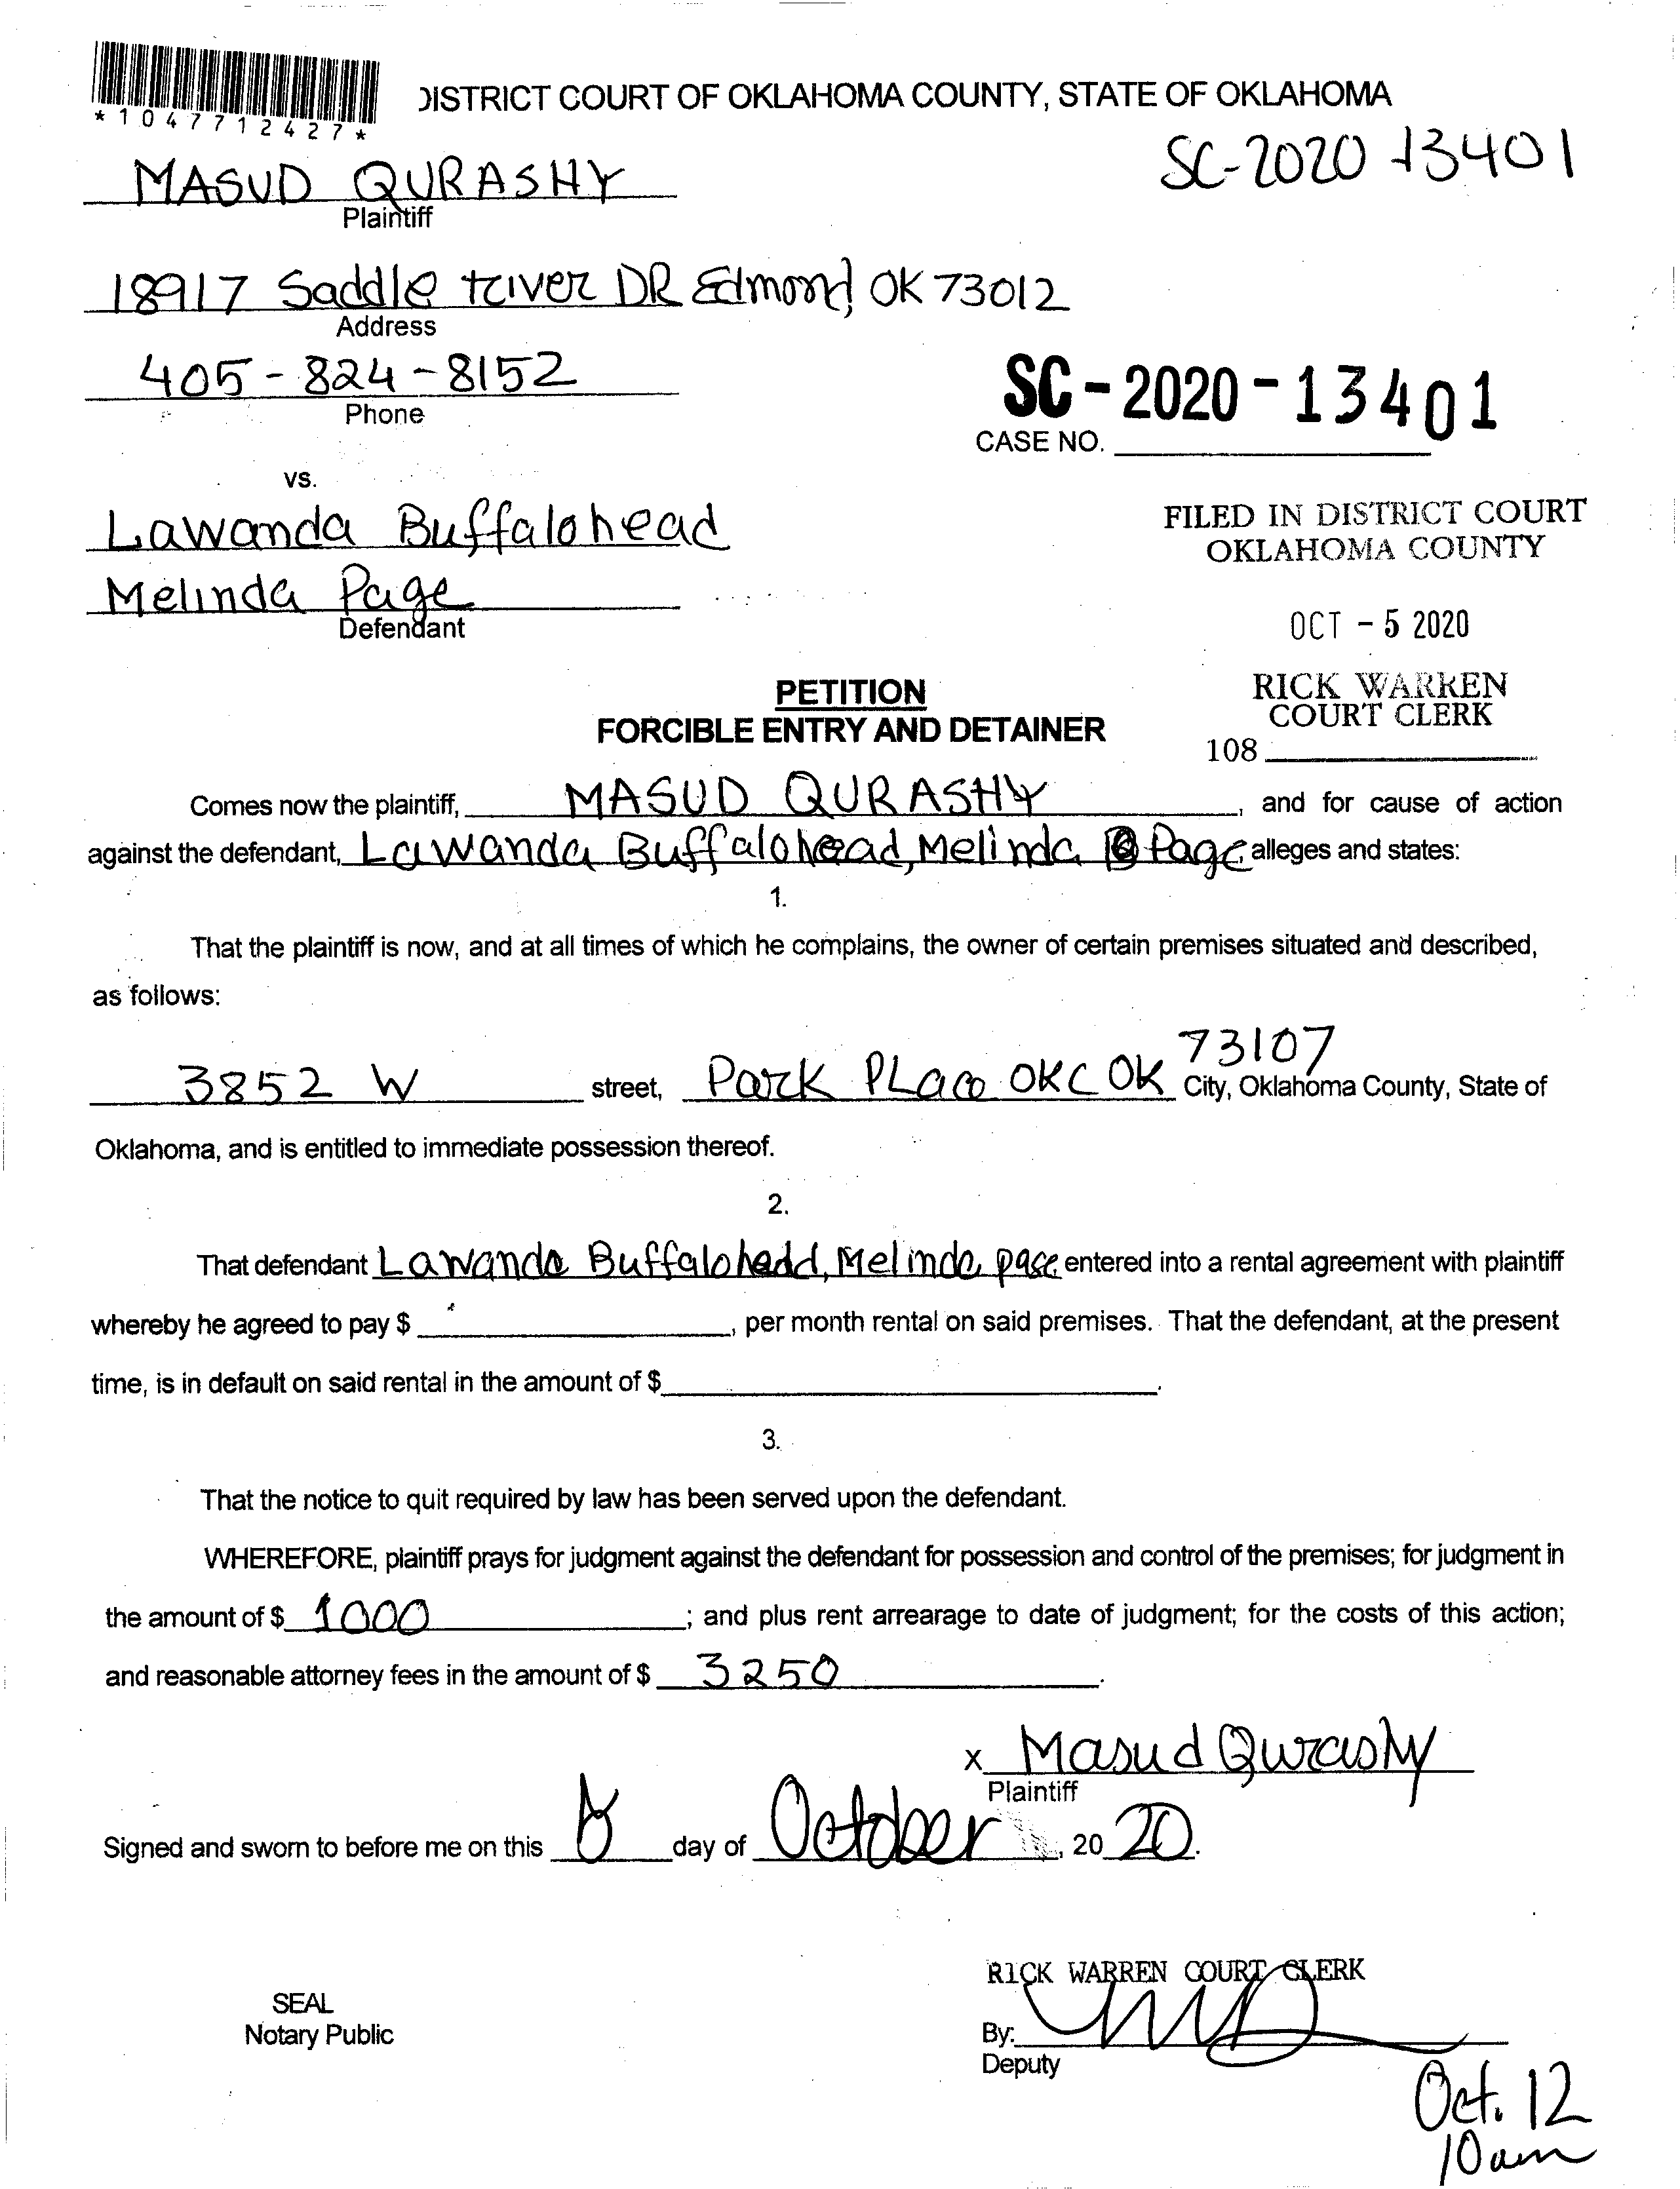 *1047712427*
DISTRICT COURT OF OKLAHOMA COUNTY, STATE OF OKLAHOMA
SC-2020 13401
MASUD QURASHY
Plaintiff
18917 Saddle river DR Edmond, OK 73012
Address
405-824-8152
Phone
SC-2020-13401
CASE NO.
vs.
Lawanda Buffalohead
Melinda Page
Defendant
FILED IN DISTRICT COURT
OKLAHOMA COUNTY
OCT - 5 2020
RICK WARREN
COURT CLERK
108
PETITION
FORCIBLE ENTRY AND DETAINER
Comes now the plaintiff, MASUD QURASHY, and for cause of action
against the defendant, Lawanda Buffalohead, Melinda Page, alleges and states:
1.
That the plaintiff is now, and at all times of which he complains, the owner of certain premises situated and described,
as follows:
73107
3852 W street, Park PLace OKC OK City, Oklahoma County, State of
Oklahoma, and is entitled to immediate possession thereof.
2.
That defendant Lawanda Buffalohead, Melinda page entered into a rental agreement with plaintiff
whereby he agreed to pay $ , per month rental on said premises. That the defendant, at the present
time, is in default on said rental in the amount of $ .
3.
That the notice to quit required by law has been served upon the defendant.
WHEREFORE, plaintiff prays for judgment against the defendant for possession and control of the premises; for judgment in
the amount of $ 1000 ; and plus rent arrearage to date of judgment; for the costs of this action;
and reasonable attorney fees in the amount of $ 3250.
x Masud Qurashy
Plaintiff
Signed and sworn to before me on this day of October, 20 20.
RICK WARREN COURT CLERK
SEAL
Notary Public
By:
Deputy
Oct. 12
10am